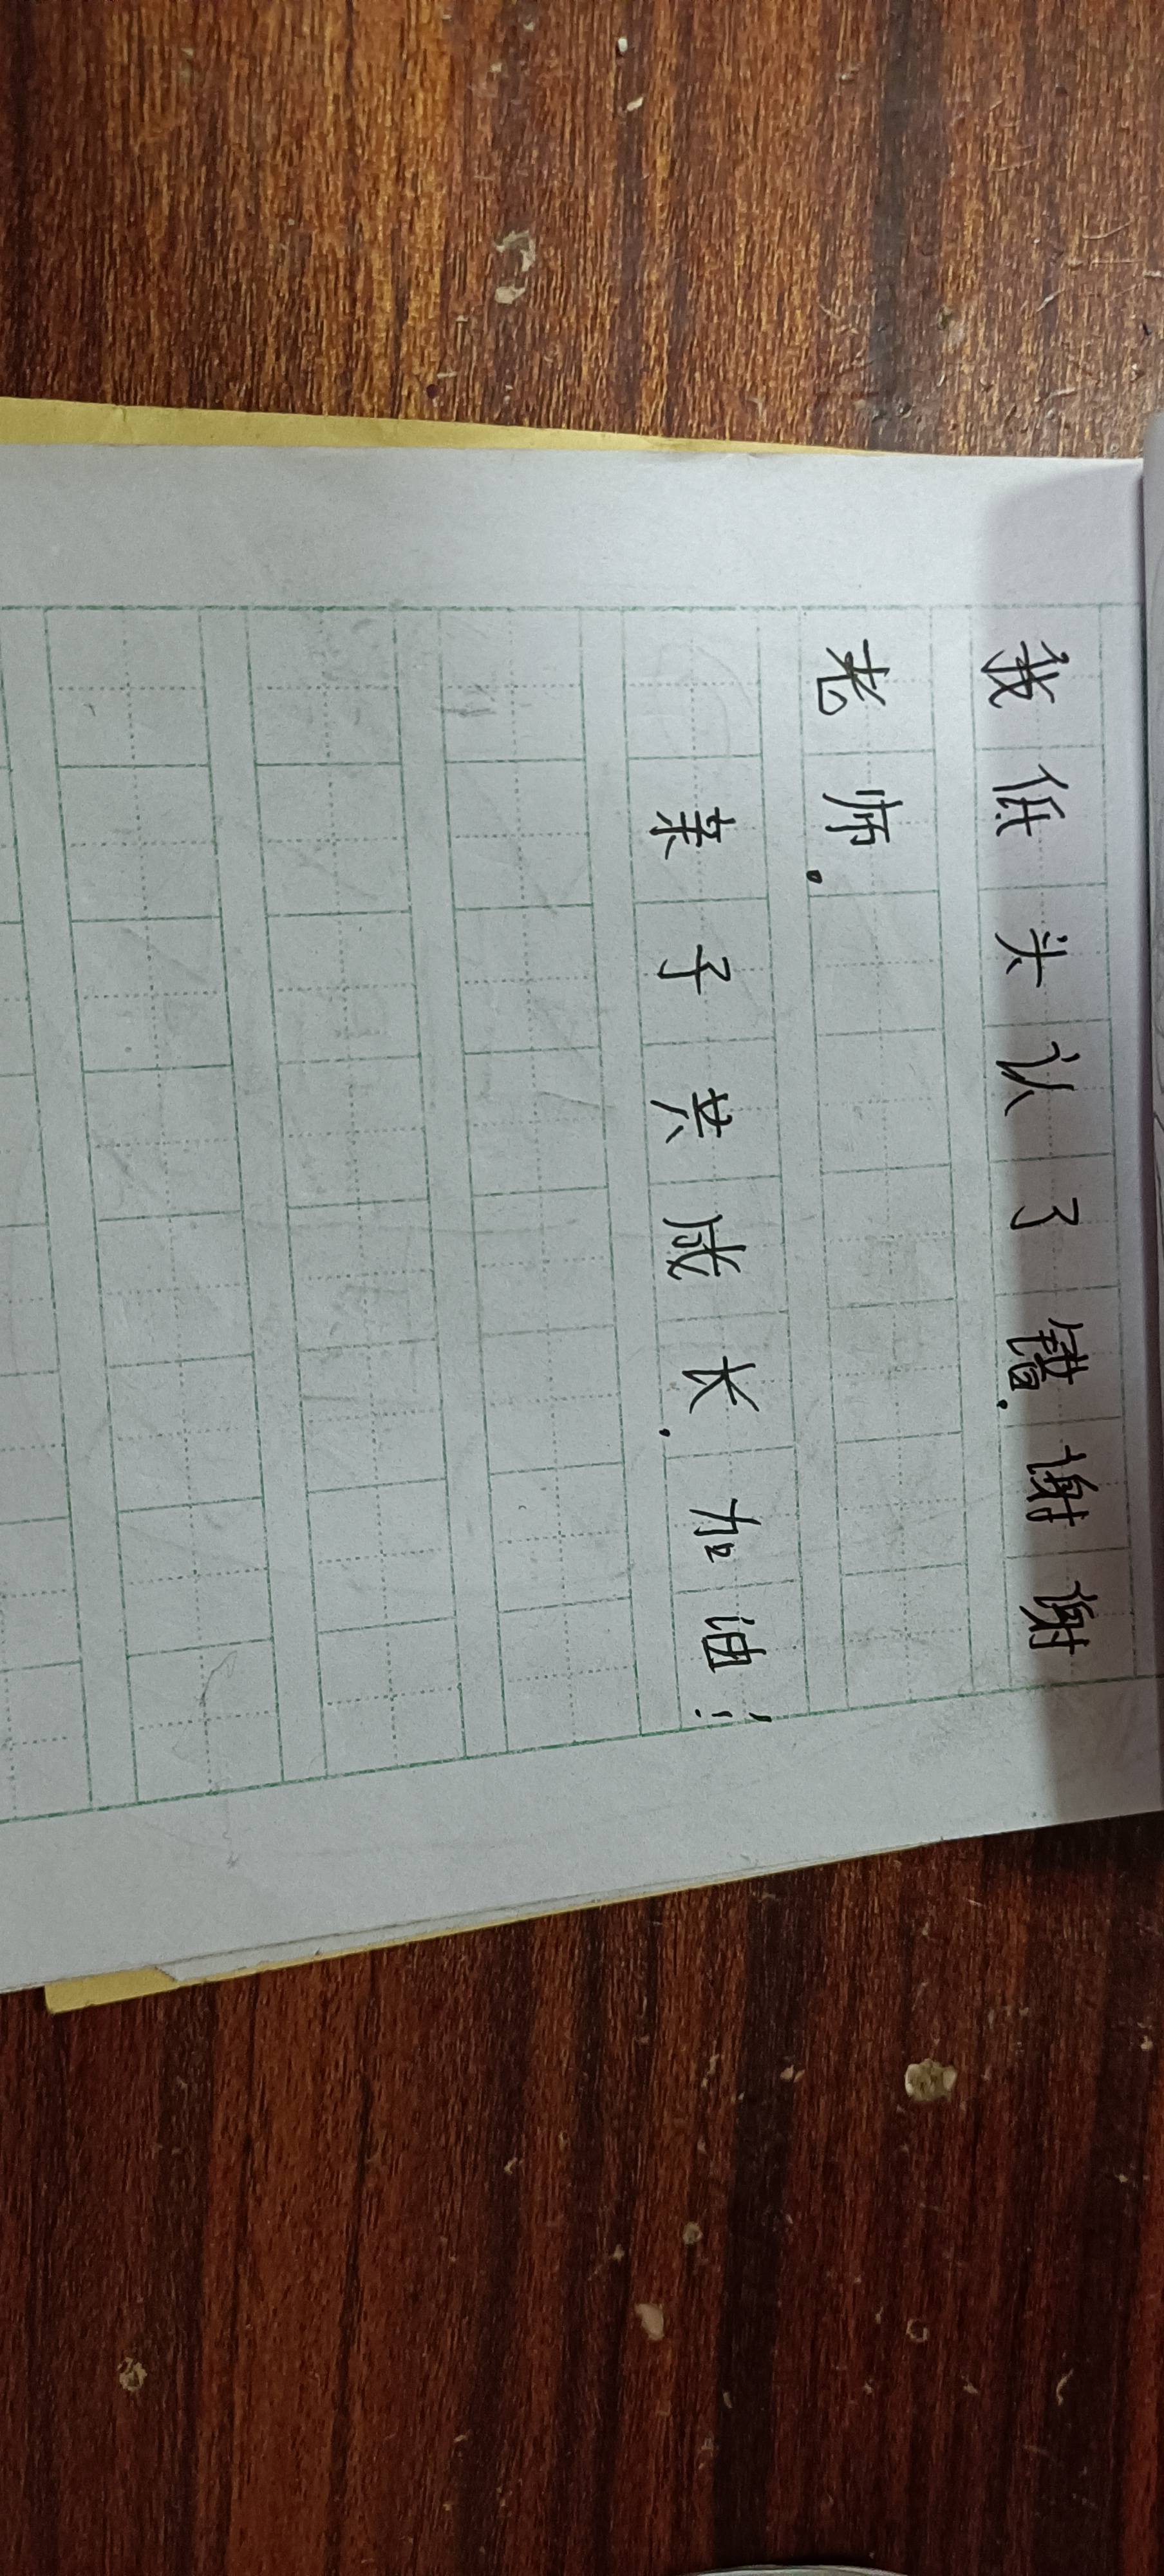 我低头认了错.谢谢
老师.
亲子共成长.加油!